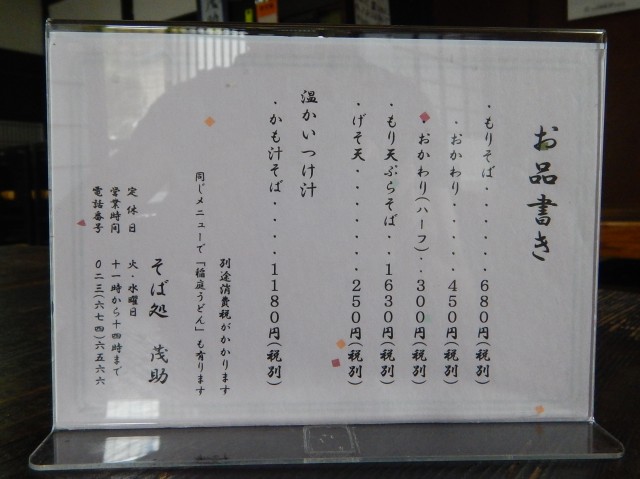 お品書き
・もりそば・・・・・・680円(税別)
・おかわり・・・・・450円(税別)
・おかわり(ハーフ)・・300円(税別)
・もり天ぷらそば・・1630円(税別)
・げそ天・・・・・・・250円(税別)
温かいつけ汁
・かも汁そば・・・・1180円(税別)
別途消費税がかかります
同じメニューで「稲庭うどん」も有ります
そば処 茂助
定休日 火・水曜日
営業時間 十一時から十四時まで
電話番号 〇二三(六七四)六五六六